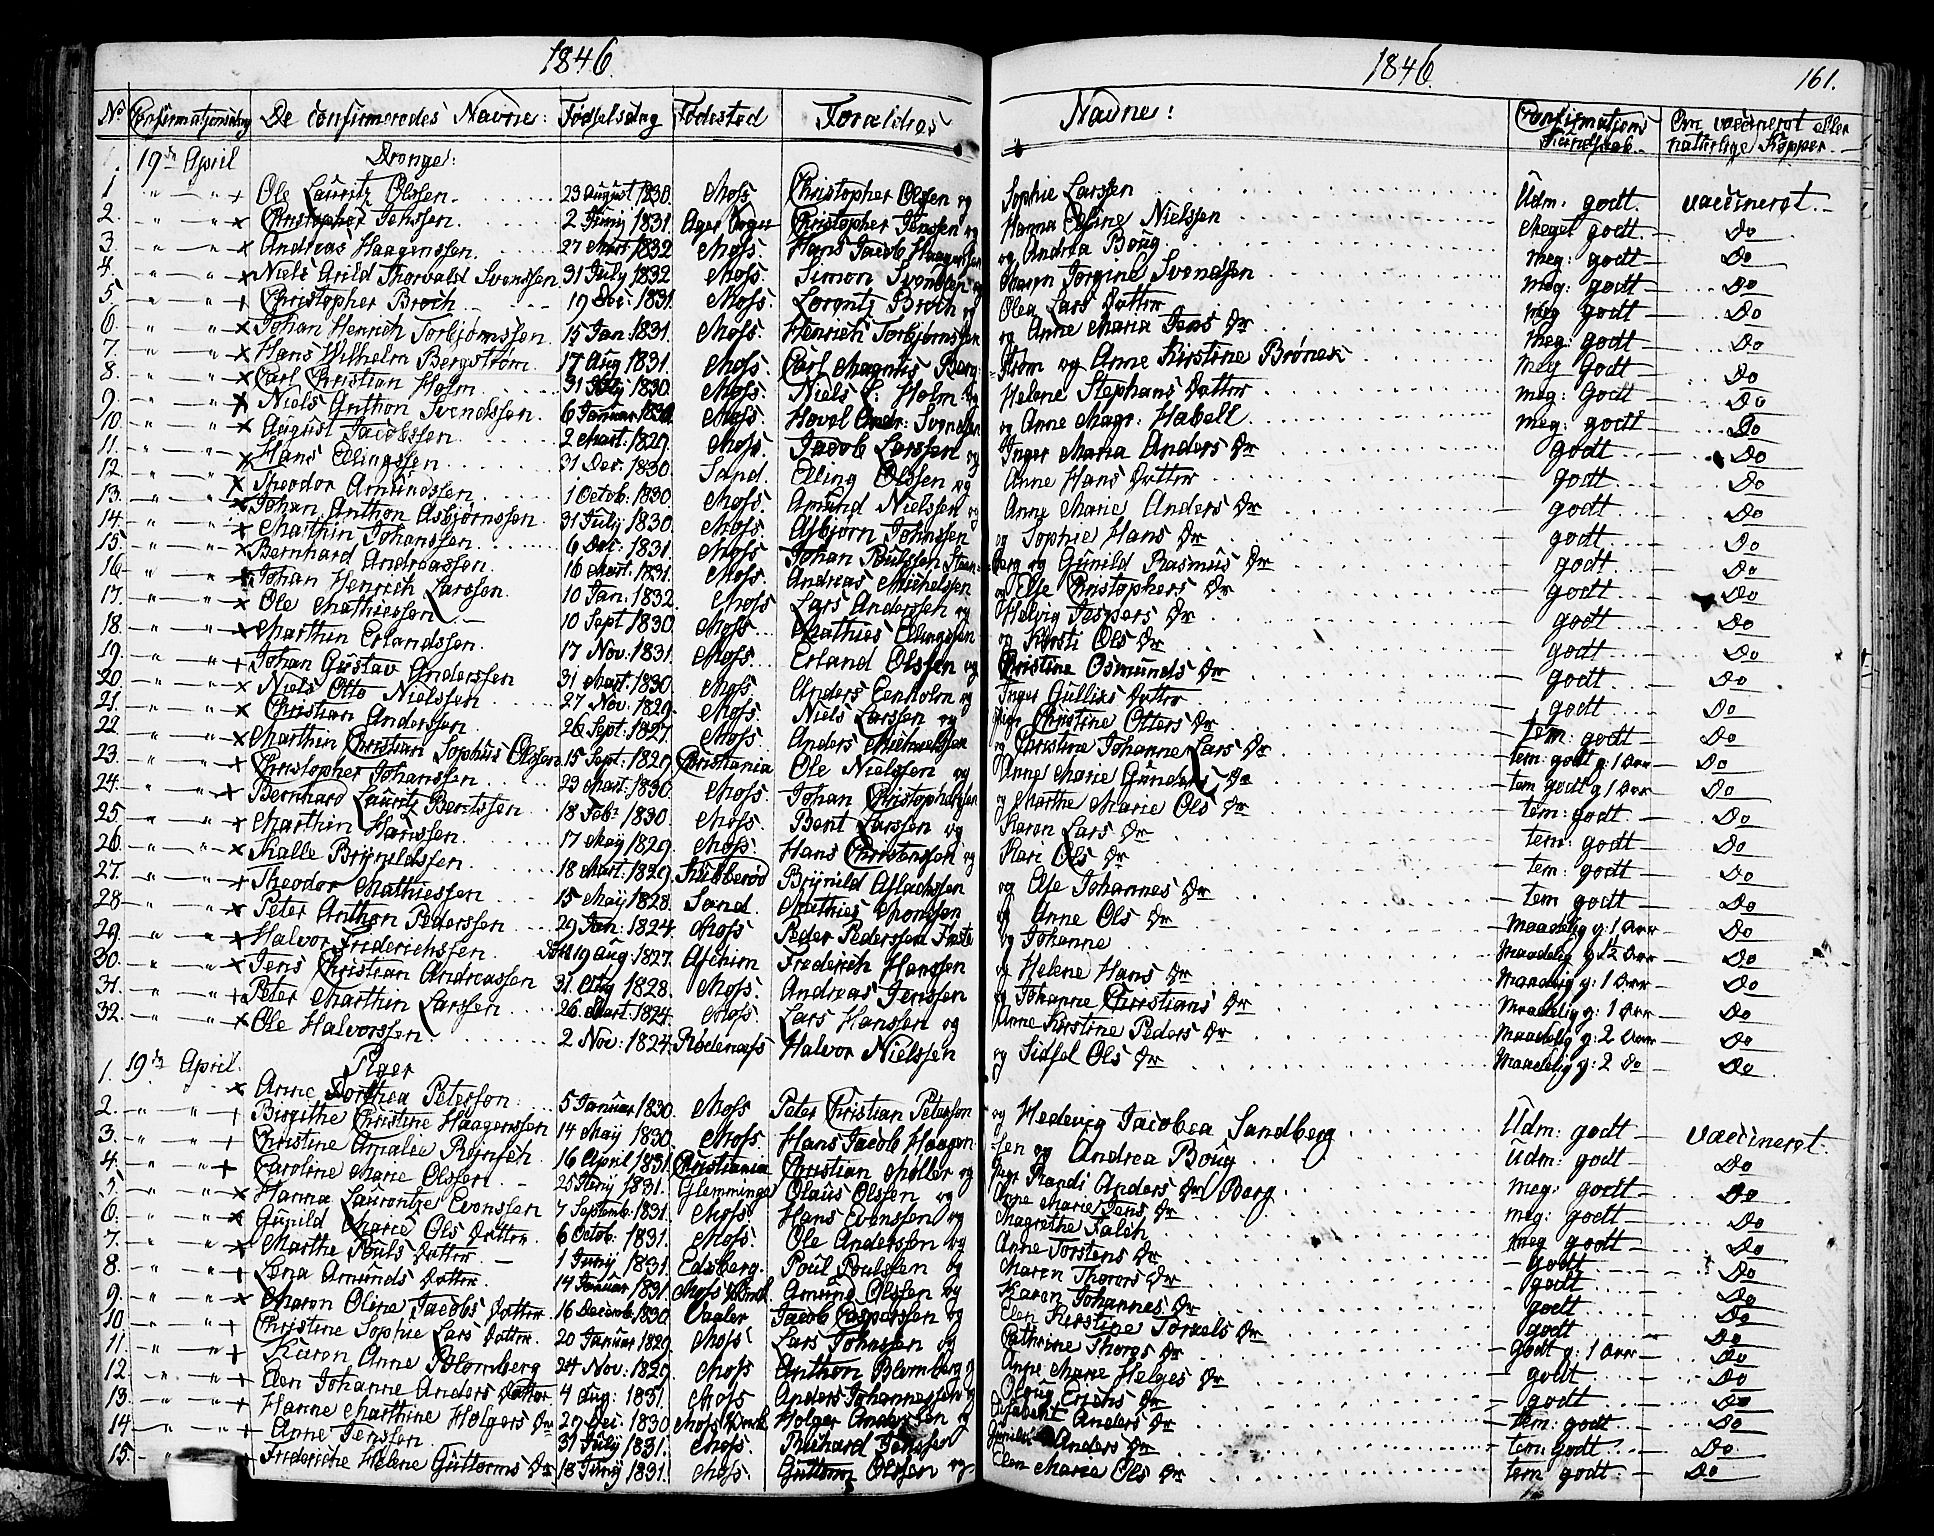 1846. 1846. 161.
No Confirmationsdag De confirmeredes Navne: Fødselsdag Fødested Forældres Navne: Confirmations Kundskab. Om vaccineret eller naturlige Kopper.
19de April Drenge:
1 " " + Ole Lauritz Olssen. 23 August 1830. Moss Christopher Olssen og Sophie Larssen Udm: godt vaccineret.
2. " " x Christopher Jenssen. 2 Junij 1831. Christopher Jenssen og Hanna Eline Nielssen Meget godt Do
3. " " x Andreas Haagenssen. 27 Mart 1832 Moss. Hans Jacob Haagenssen og Andrea Boug meg: godt Do
4. " " x Niels Arild Thorvald Svendssen 31 July 1832 Moss. Simon Svendsen og Maren Jorgine Svendsen meg: godt Do
5. " " + Christopher Broch 19 Dec: 1831. Moss. Lorentz Broch og Olea Lars Datter meg godt Do
6. " " x Johan Henrich Torbjørnssen. 15 Jan. 1831. Moss. Henrich Torbjørnssen og Anne Maria Jens Dr meg: godt Do
7. " " x Hans Wilhelm Bergstrøm. 17 Aug 1831. Moss. Carl Magnus Berg: strøm og Anne Kirstine Brønek meg godt Do
8. " " x Carl Christian Holm. 31 July 1830. Moss. Niels C: Holm og Helene Stephans Datter meg: godt Do
9. " " x Niels Anthon Svendssen. 6 Januar 1830. Moss. Hovel Ander: Svendsen og Anne Magr: Habell meg: godt Do
10. " " x August Jacobssen. 2 Mart: 1829. Moss. Jacob Larssen og Inger Maria Anders Dr godt Do
11. " " x Hans Ellingssen. 31 Dec. 1830. Sand. Elling Olssen og Anne Hans Datter godt Do
12. " " x Theodor Amundssen. 1 Octob: 1830. Moss. Amund Nielssen og Anne Marie Anders Dr godt Do
13. " " x Johan Anthon Asbjørnssen. 31 July 1830. Moss. Asbjørn Johnssen og Sophie Hans Dr godt Do
14. " " x Marthin Johanssen. 6 Dec: 1831. Moss. Johan Poulsen og Gunild Rasmus Dr godt Do
15. " " x Bernhard Andreassen. 16 Mart. 1831. Moss. Andreas Michelsen og Else Christophers Dr godt Do
16 " " x Johan Henrich Larssen. 10 Jan: 1832. Moss Lars Anderssen og Helvig Jespers Dr godt Do
17. " " x Ole Mathiessen. 10 Sept 1830. Moss Mathies Ellingssen og Kirsti Ols Dr godt Do
18. " " x Marthin Erlandssen. 17 Nov: 1831. Moss. Erland Olssen og Christine Osmunds Dr godt Do
19. " " + Johan Gustav Anderssen 31 Mart. 1830. Moss. Anders Eenholm og Inger Gulliks Datter godt Do
20. " " x Niels Otto Nielssen. 27 Nov. 1829. Moss. Niels Larssen og Christine Otters Dr godt Do
21. " " x Christian Anderssen. 26 Sept. 1827. Moss. Anders Michelssen og Christine Johanne Lars Dr tem: godt Do
22 " " x Marthin Christian Sophus Olssen 15 Sept: 1829. Christiania Ole Nielssen og Anne Marie Gunders Dr tem: godt g: 1 Aar Do
23. " " x Christopher Johanssen. 23 Mart. 1830. Moss. Johan Christophersen og Marthe Marie Ols Dr tem godt g 1 Aar Do
24. " " + Bernhard Lauritz Bentssen. 18 Feb: 1830. Moss. Bent Larssen og Karen Lars Dr tem: godt Do
25. " " x Marthin Hanssen. 17 May 1829. Moss. Hans Christenssen og Kari Ols Dr tem: godt Do
26. " " x Kalle Brynildssen. 18 Mart. 1829. Brynild Aslachssen og Ase Johannes Dr tem: godt Do
27. " " + Theodor Mathiessen. 15 May 1828. Sand. Mathies Monssen og Anne Ols Dr tem godt Do
28 " " x Peter Anthon Pederssen 29 Jan: 1824. Moss Peder Pederssen og Johanne Maadelig g: 1 Aar Do
29. " " x Halvor Friderichssen. 19 Aug 1827. Aschim Frederich Hanssen og Helene Hans Dr Maadelig g: 1/2 Aar Do
30. " " x Jens Christian Andreassen 31. 1828. Moss. Andreas Jenssen og Johanne Christians Dr Maadelig g: 1 Aar Do
31. " " + Peter Marthin Larssen 26 Mart. 1824. Moss Lars Hanssen og Anne Kirstine Peders Dr Maadelig g: 1 Aar Do
32. " " x Ole Halvorssen. 2 Nov: 1824. Rødenæss Halvor Nielssen og Sidsel Ols Dr Maadelig g: 2 Do Do
19de April. Piger
1. x Anne Dorthea Peterssen: 5 Januar 1830. Moss Peter Christian Peterssen og Hedevig Jacobea Sandberg Udm: godt vaccineret.
2. " " + Birgithe Christine Haagenssen 14 Maij 1830. Moss. Hans Jacob Haagen: sen og Andrea Boug Udm: godt Do
3. " " + Christine Amalie Reinsch. 16 April 1831. Christiania Christian Møller og Randi Anders Dr Berg meg: godt Do
4. " " + Caroline Marie Olssen. 25 Junij 1831. Glemminge Olaus Olssen og Anne Marie Jens Dr meg: godt Do
5. " " x Hanna Laurentze Evenssen 7 Septemb: 1831. Moss Hans Evenssen og Magrethe Falch meg godt Do
6. " " x Gunild Marie Ols Datter. 6 Octob. 1831. Moss. Ole Anderssen og Anne Torstens Dr godt Do
7. " " x Marthe Pouls Datter 1 Junij 1831. Edsberg. Poul Poulssen og Maren Thorers Dr godt Do
8. " " + Lena Amunds Datter. 14 Januar 1831. Moss Amund Olssen og Karen Johannes Dr godt Do
9. " " x Maren Oline Jacobs Datter 16 Decemb: 1830. Vaaler Jacob Casperssen og Elen Kirstine Torkels Dr godt Do
10. " " + Christine Sophie Lars Datter. 20 Januar 1829. Moss Lars Johnssen og Cathrine Thores Dr godt g: 1 Aar Do
11. " " + Karen Anne Blomberg 24 Nov: 1829. Moss Anthon Blomberg og Anne Marie Helges Dr godt Do
12 " " + Elen Johanne Anders Datter 4 Aug: 1831. Moss Anders Johannessen og Oloug Erichs Dr godt Do
13. " " + Hanne Marthine Holgers Dr 29 Dec: 1830 Moss Holger Anderssen og Anders Dr tem: godt Do
14 " " + Anne Jenssen. 31 July 1831. Moss. Richard Jenssen Anders Dr tem: godt Do
15. Frideriche Helene Guttorms Dr 18 Junij 1831. Moss. Guttorm Olssen og Elen Marie Ols Dr tem godt. Do